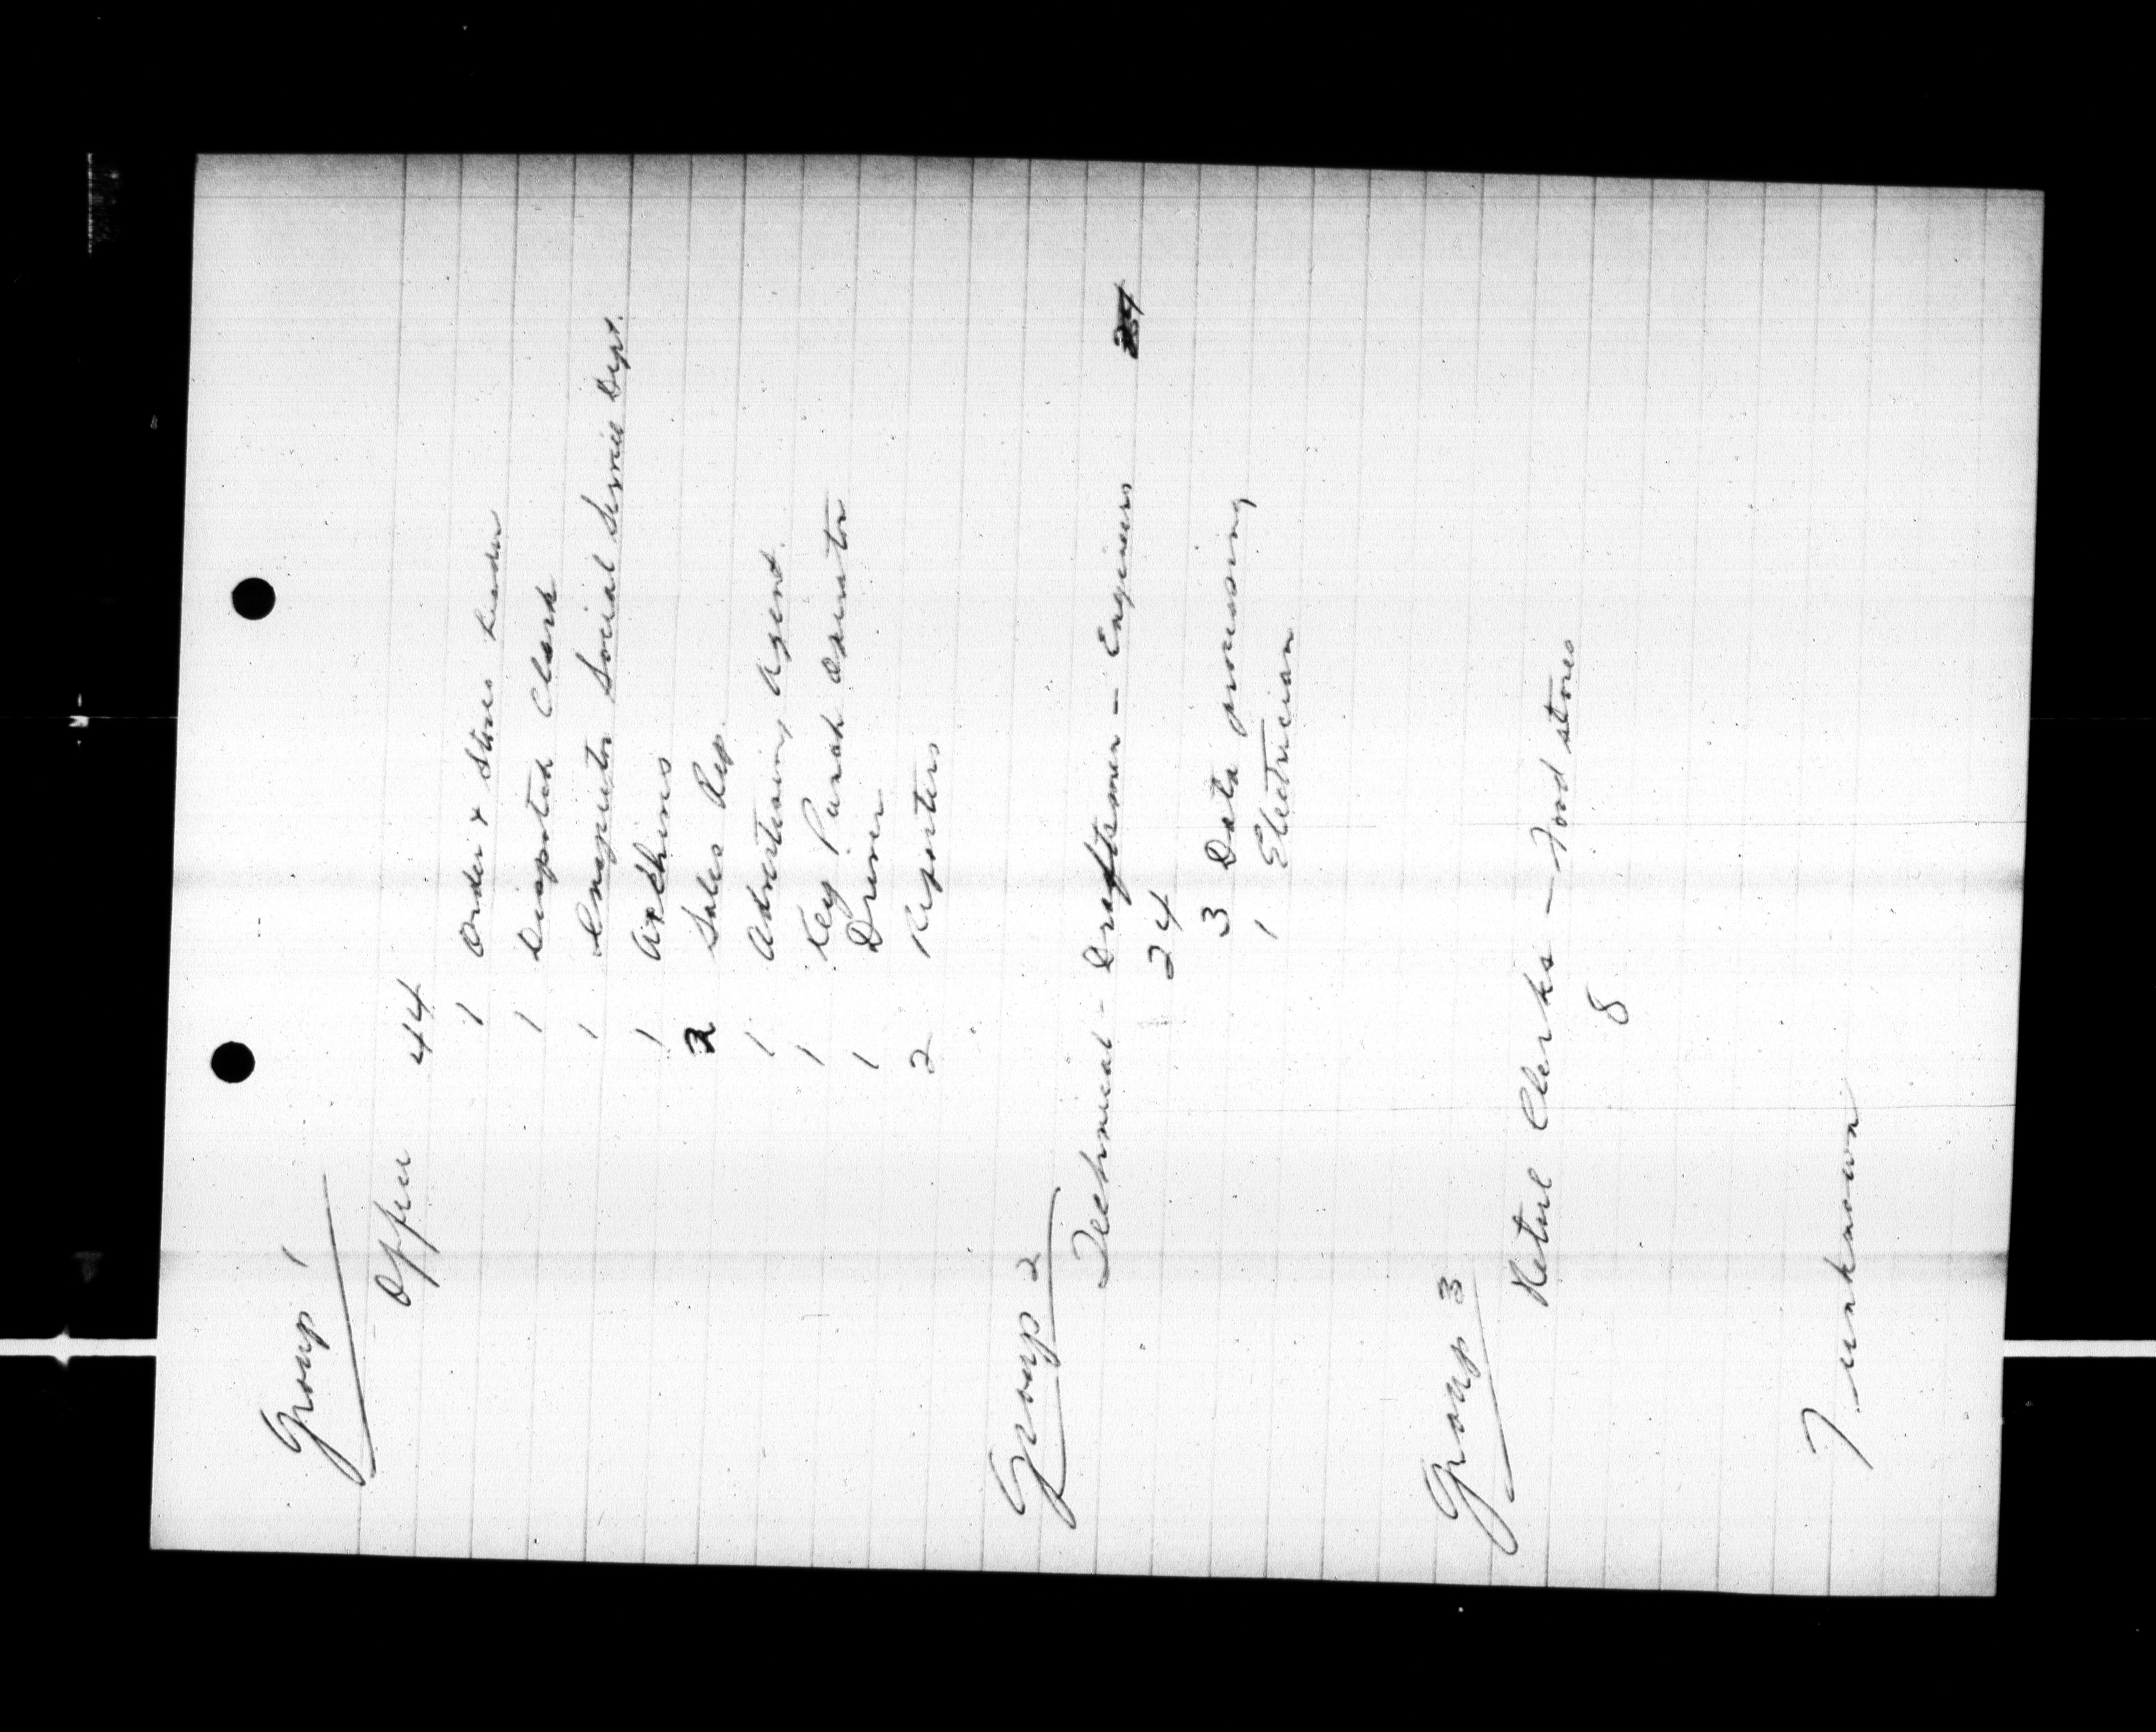 Group 1
Office 44
1 Order & Store Leader
1 Dispatch Clerk
1 Inspector Social Service Dept.
1 Airlines
2 Sales Rep.
1 Advertising Agent.
1 Key Punch Operator
1 Driver
2 Reporters
Group 2
Technical - Draftsmen - Engineers
24
3 Data processing
1 Electrician
Group 3
Retail Clerks - Food stores
8
7 - unknown